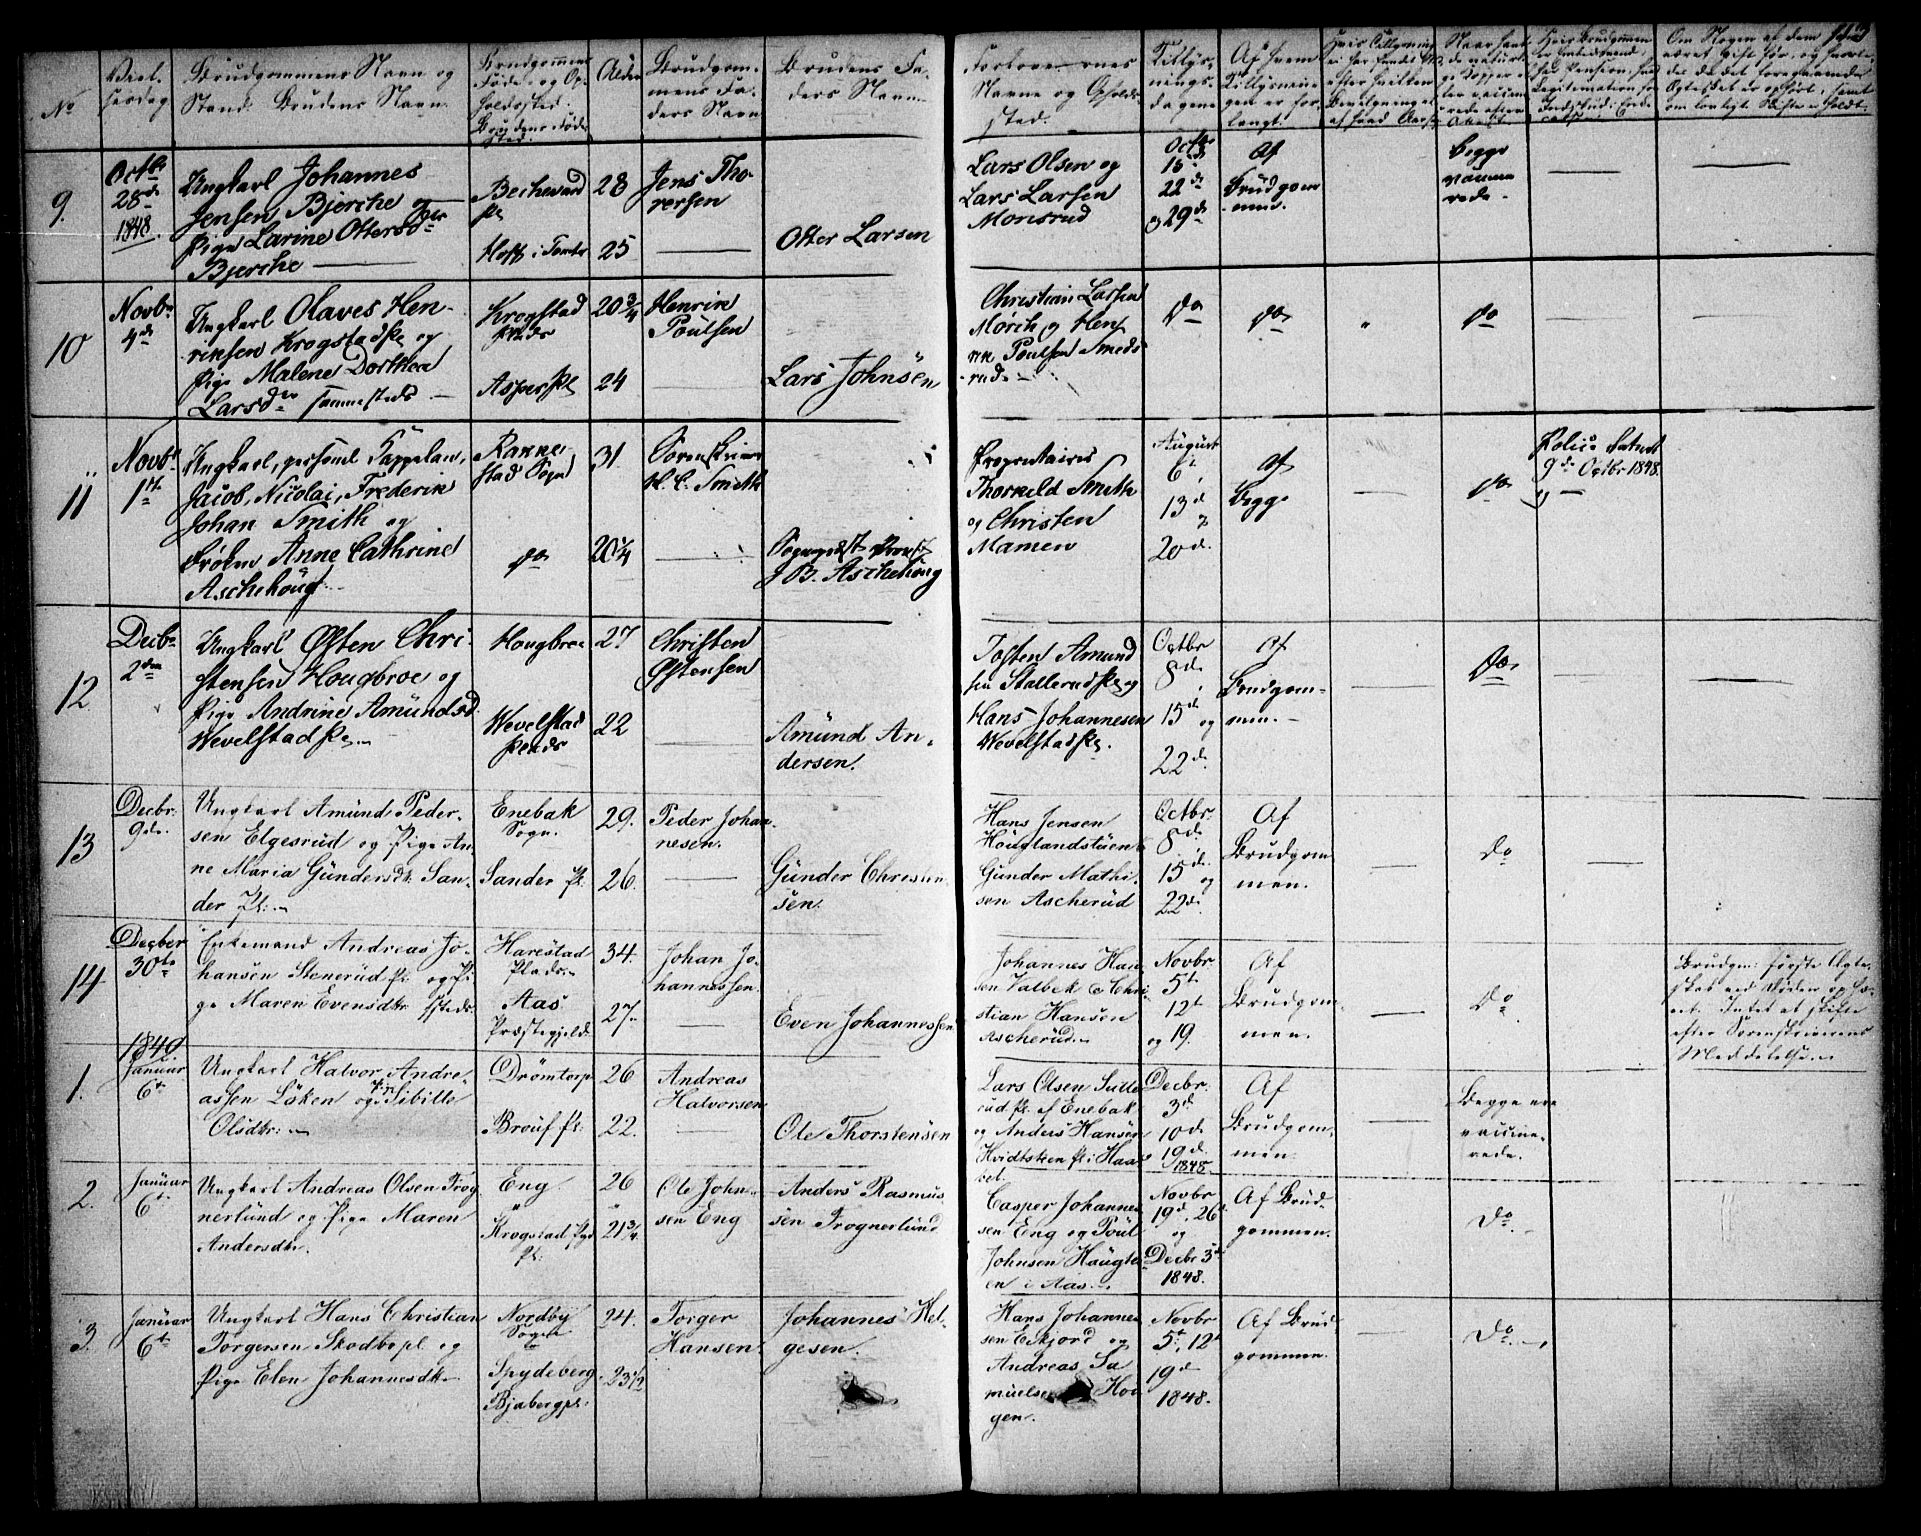 No
Viel-
sesdag.
Brudgommens Navn og
Stand. Brudens Navn.
Brudgommens
Føde- og Op-
holdssted.
Brudens Føde-
sted.
Alder
Brudgom-
mens Fa-
ders Navn
Brudens Fa-
ders Navn
Forloverernes
Navne og Opholds-
sted.
Tillys-
nings-
dagene
Af hvem
Tillysnin-
gen er for-
langt.
9.
Octbr
28de
1848.
Ungkarl Johannes
Jensen Bjerche og
Pige Larine Ottersdr
Bjerche
28
25
Jens Tho-
resen
Otter Larsen
Lars Olsen og
Lars Larsen
Monsrud
Octbr
15de
22de
og 29de
Af
Brudgom
men.
begge
vaccine
rede.
10
Novbr
4de
Ungkarl Olaves Hen-
riksen Krogstadpl og
Pige Malene Dorthea
Larsdr sammesteds
Krogstad
Plads
Asperpl
20 3/4
24
Henrik
Poulsen
Lars Johnsen
Christian Larsen
Mørch og Hen
rik Poulsen Smeds-
rud.
Do
Do
Do
11
Novbr
1ste
Ungkarl, personel Kappelan,
Jacob, Nicolai, Frederik
Johan Smith og
Frøken Anne Cathrine
Aschehoug.
Rakke-
stad Sogn
do
31
20 1/4
Sorenskriver
H. C. Smith
Sognepræst Provst
J. B. Aschehoug
Proprietairer
Thorkild Smith
og Christen
Mamen
August
6te
13de
20de.
af
Begge
Do
Police
9de Octbr 1848.
12
Decbr
2den
Ungkarl Østen Chri-
stensen Hougbroe og
Pige Andrine Amundsd
Wevelstadpl.
Hougbroe
Wevelstad
Plads
27
22
Christen
Østensen
Amund An-
dersen.
Tosten Amund
sen Stallerudpl og
Hans Johannesen
Wevelstadpl.
Octbr
8de
15de og
22de.
Af
Brudgom-
men.
Do
13
Decbr.
9de.
Ungkarl Amund Peder-
sen Elgesrud og Pige An-
ne Maria Gundersdtr San-
der Pl:
Enebak
Sogn.
Sander Pl:
29.
26.
Peder Johan-
nesen.
Gunder Christen-
sen.
Hans Jensen
Houglandstuen
Gunder Mathi-
sen Ascherud
Octbr.
8de
15de. og
22de.
Af
Brudgom-
men.
Do
14
Decber
30te
Enkemand Andreas Jo-
hansen Stenerud Pl og Pi-
ge Maren Evensdtr ssteds
Harestad
Plads.
Aas
Præstegjeld
34.
27.
Johan Jo-
hannessen.
Even Johannessen
Johannes Han-
sen Valbek & Chri-
stian Hansen
Ascherud.
Novbr.
5te
12te
og 19.
Af
Brudgom
men.
Do
Brudgm: første Ægte-
skab ved Døden ophæ-
vet. Intet at skifte
efter Sorenskriverens
Meddelelse.
1849
1.
Januar
6te
Ungkarl Halvor Andre-
assen Løken og Pige Sibille
Olsdtr:
Drømtorp
Brouf Pl:
26
22.
Andreas
Halvorsen
Ole Thorstensen
Lars Olsen Sutte
rud Pl. af Enebak
og Anders Hansen
Hvidtsteen Pl: i Haa-
vet.
Decbr.
3de
10de
19de.
1848.
Af
Brudgom-
men.
Begge ere
vaccine-
rede.
2.
Januar
6te
Ungkarl Andreas Olsen Frog
nerlund og Pige Maren
Andersdtr.
Eng
Krogstad
Pl:
26
21 3/4
Ole John-
sen Eng
Anders Rasmus
sen Frognerlund
Casper Johannes
sen Eng og Poul
Johnsen Haugte
en i Aas.
Novbr
19de, 26de
og
Decbr 3de
1848.
Af Brud-
gommen.
Do.
3.
Januar
6te
Ungkarl Hans Christian
Torgersen Skodbopl og
Pige Elen Johannesdtr
Nordby
Sogn
Spydeberg.
Bjabergpl:
24.
23 1/2
Torger
Hansen.
Johannes Hel-
gesen.
Hans Johanne
sen Eskjord og
Andreas Sa
muelsen Hou
gen.
Novbr
5te, 12te
19de
1848.
Af Brud
gommen.
Do.